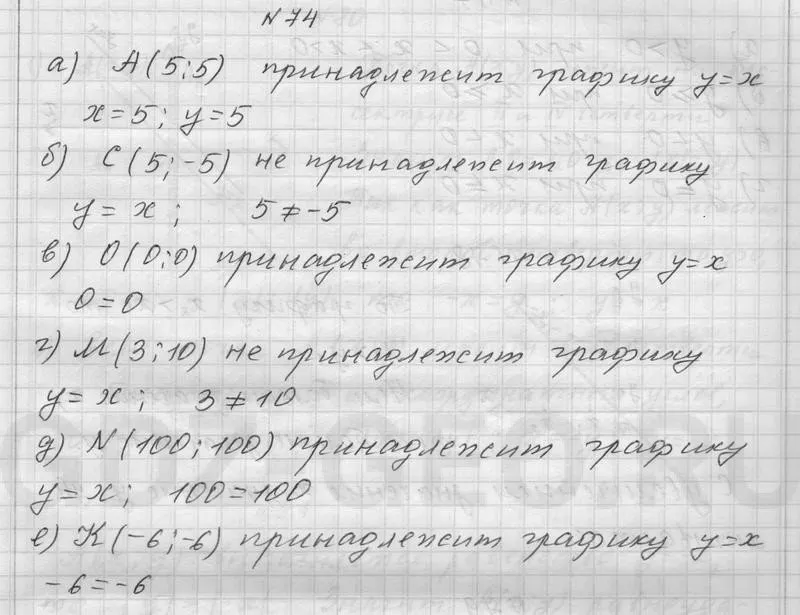 N 74
а) A(5;5) принадлежит графику y=x
x=5; y=5
б) C(5;-5) не принадлежит графику
y = x ; 5≠-5
в) O(0;0) принадлежит графику y=x
0=0
г) M(3;10) не принадлежит графику
y= x ; 3≠10
д) N(100;100) принадлежит графику
y=x; 100=100
е) K(-6;-6) принадлежит графику y=x
-6=-6